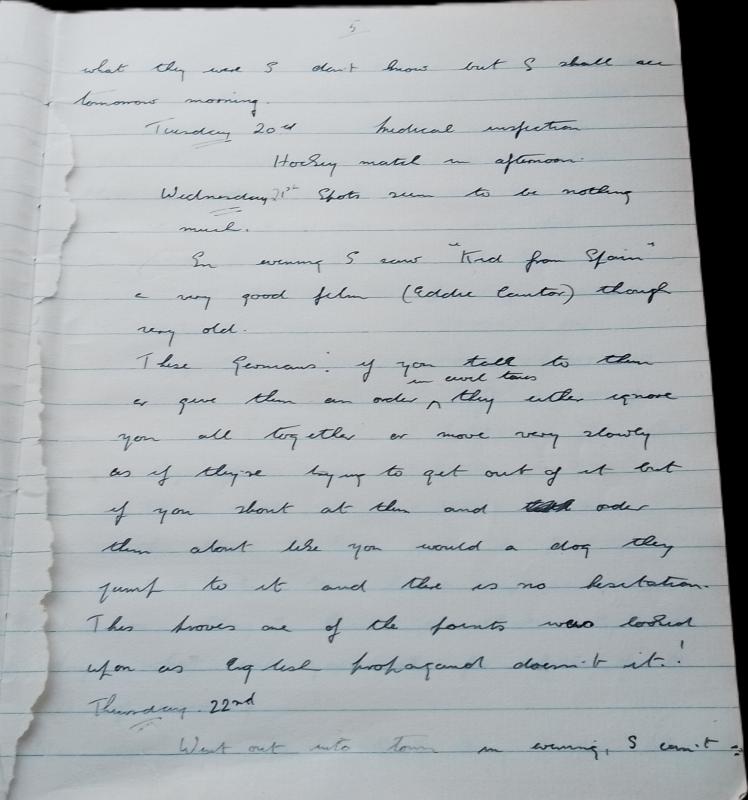 5
what they were I don't know but I shall see
tomorrow morning.
Tuesday 20th Medical inspection
Hockey match in afternoon.
Wednesday 21st Spots seem to be nothing
much.
In evening I saw "Kid from Spain"
a very good film (Eddie Cantor) though
very old.
These Germans: if you talk to them
in civil tones
or give them an order ^ they either ignore
you all together or move very slowly
as if they're trying to get out of it but
if you shout at them and order
them about like you would a dog they
jump to it and there is no hesitation.
This proves one of the points was looked
upon as English propagand doesn't it.!
Thursday 22nd
Went out into town in evening, I can't